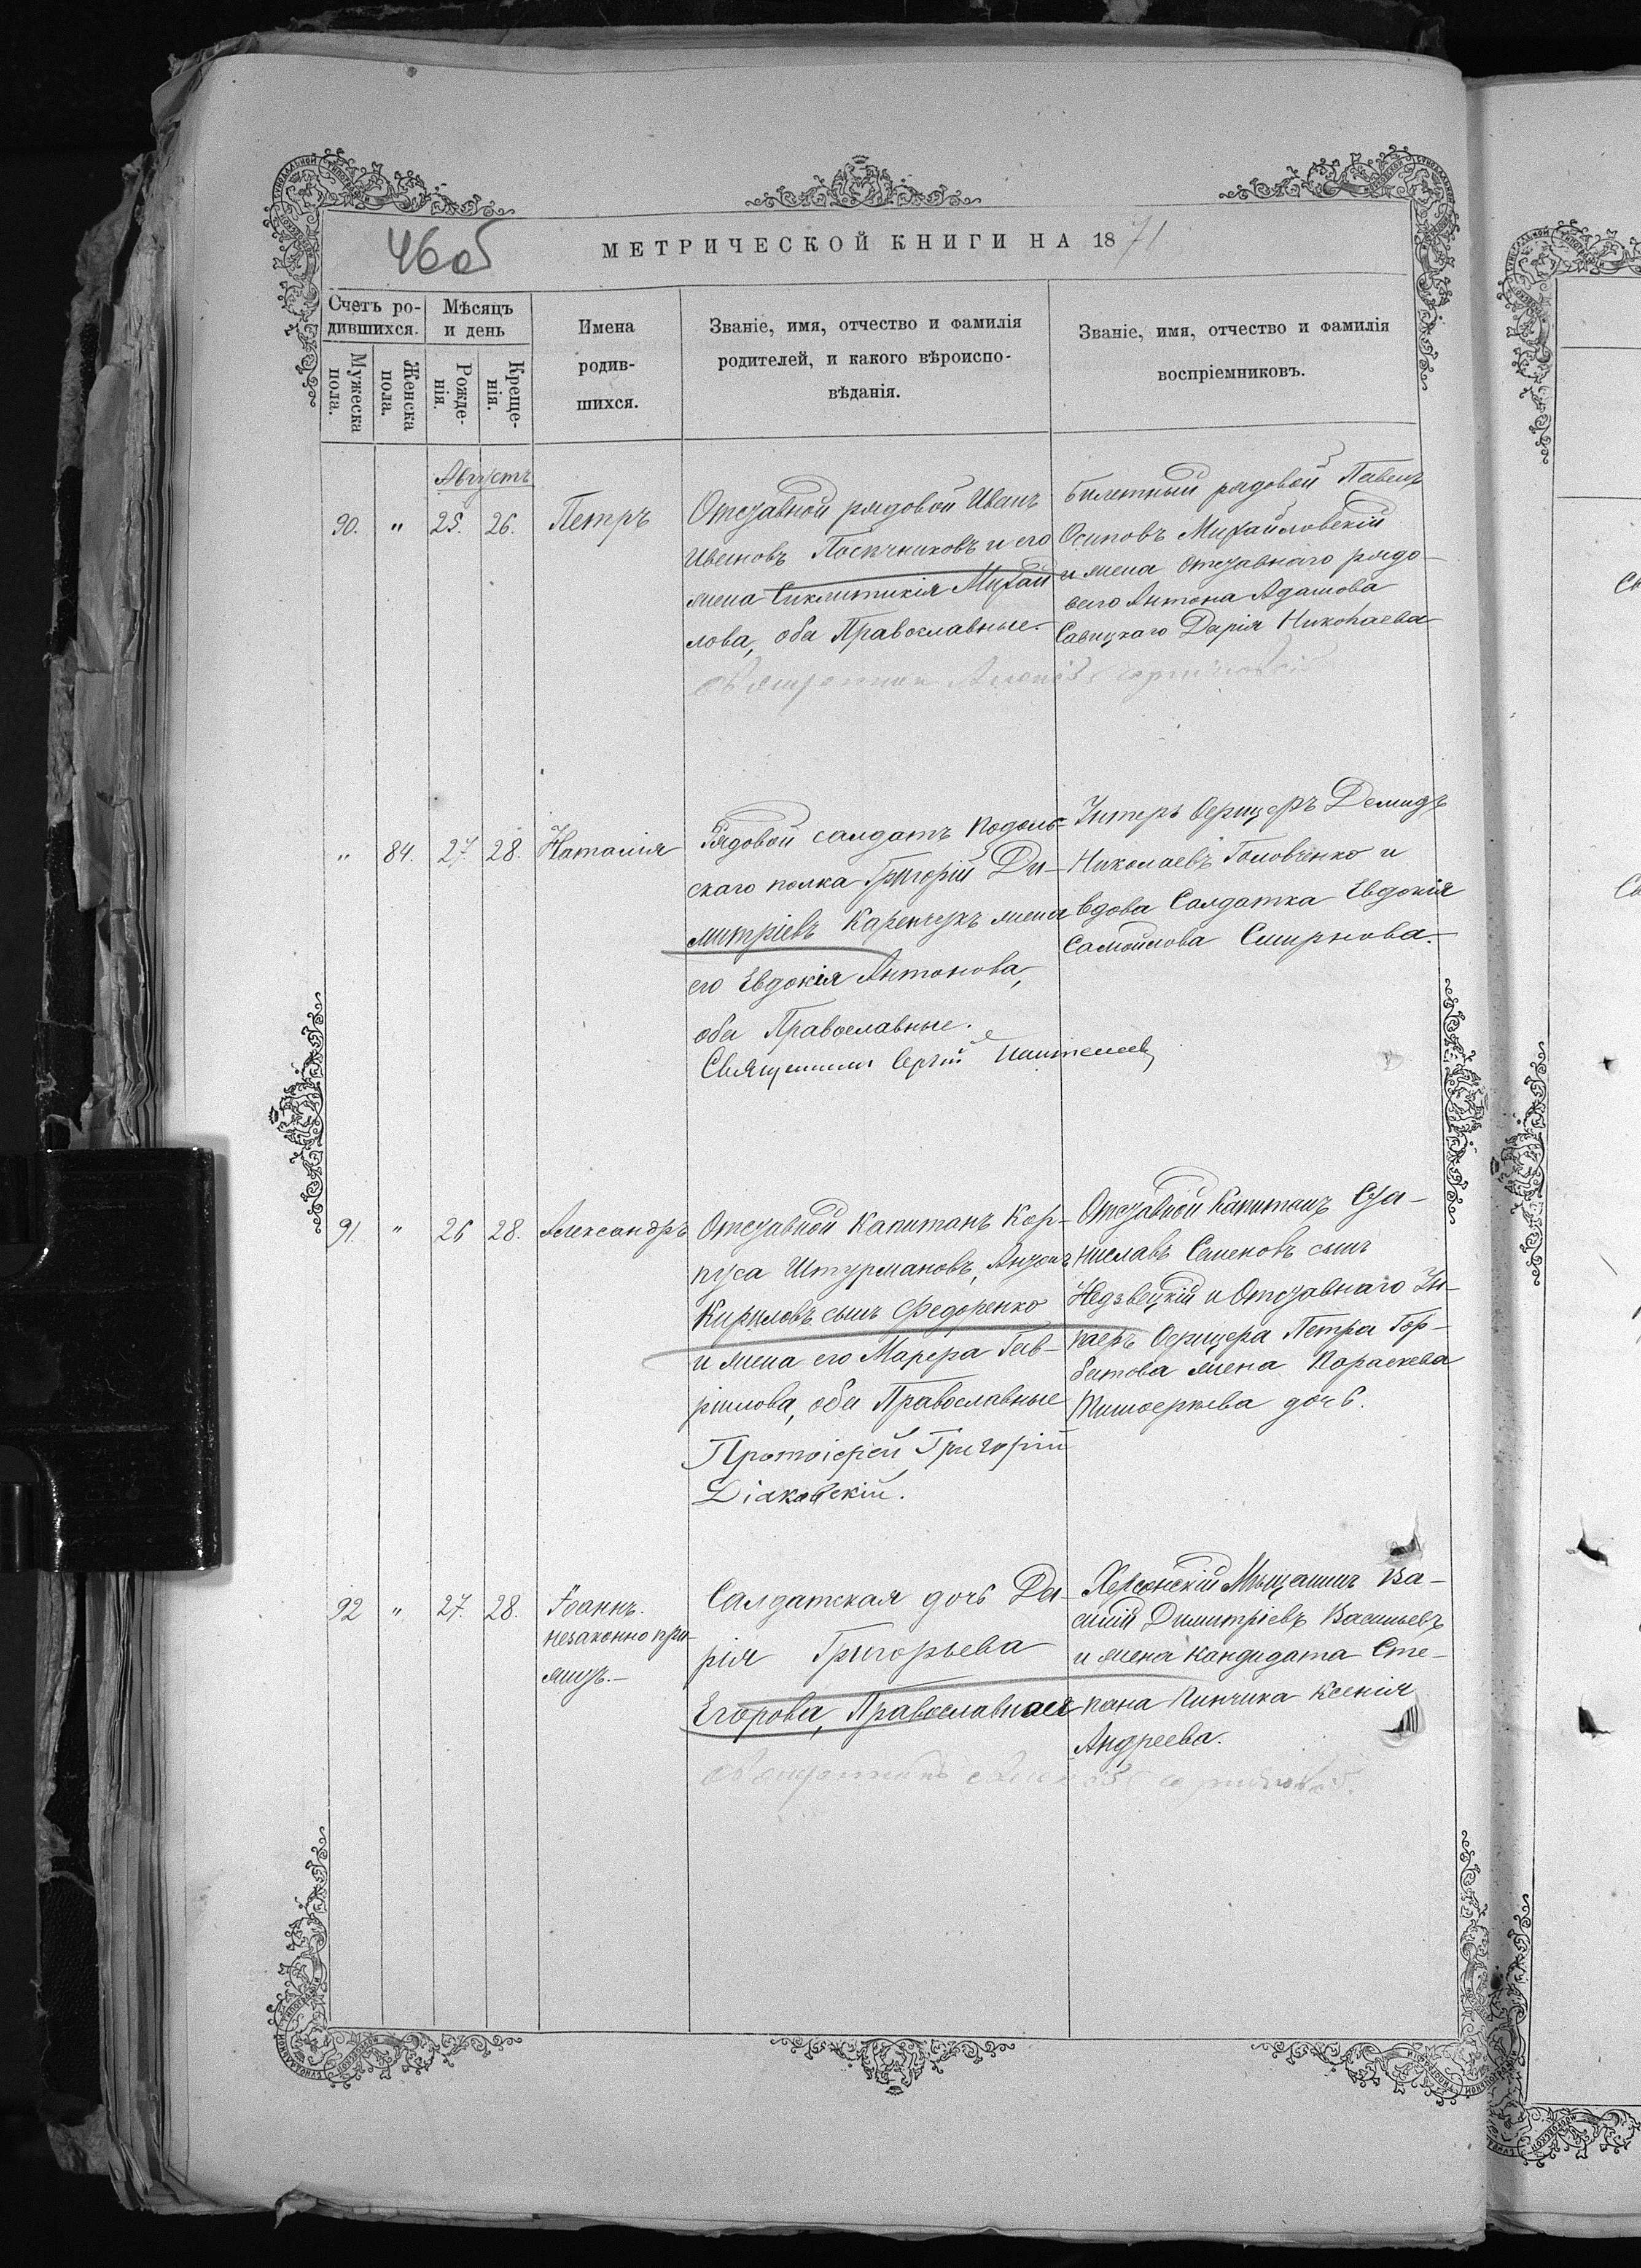 46об
МЕТРИЧЕСКОЙ КНИГИ НА 1871
Счетъ ро-
дившихся.
Мѣсяцъ
и день
Мужеска
пола.
Женска
пола.
Рожде-
нія.
Креще-
нія.
Имена
родив-
шихся.
Званіе, имя, отчество и фамилія
родителей, и какого вѣроиспо-
вѣданія.
Званіе, имя, отчество и фамилія
воспріемниковъ.
Августъ
90. " 25. 26. Петръ
Отставной рядовой Иванъ
Ивановъ и его
жена Синклитикія Михай
лова, оба Православные.
Билетный рядовой Павелъ
Осиповъ Михайловскій
и жена Отставнаго рядо-
ваго Антона Адамова
Савицкаго Дарія Николаева
Священникъ
" 84. 27. 28. Наталія
Рядовой салдатъ Подоль-
скаго полка Григорій Ди-
митріевъ жена
его Евдокія Антонова,
оба Православные.
Священникъ Сергій
Унтеръ Офицеръ Демидъ
Николаевъ Головченко и
вдова Салдатка Евдокія
Самойлова Смирнова.
91. " 26 28. Александръ
Отставной Капитанъ Кор-
пуса Штурмановъ,
Кириловъ сынъ Федоренко
и жена его Марфа Гав-
ріилова, оба Православные
Протоіерей Григорій
Діаковскій.
Отставной Капитанъ Ста-
ниславъ Семеновъ сынъ
Недзвецкій и Отставнаго Ун-
теръ Офицера Петра Гор-
батова жена Параскева
Тимоѳеева дочь.
92 " 27. 28. Іоаннъ.
незаконно при-
житъ.-
Салдатская дочь Да-
рія Григорьева
Егорова, Православная
Херсонскій Мѣщанинъ Ва-
силій Димитріевъ Васильевъ
и жена кандидата Сте-
пана Пинчика Ксенія
Андреева.
Священникъ